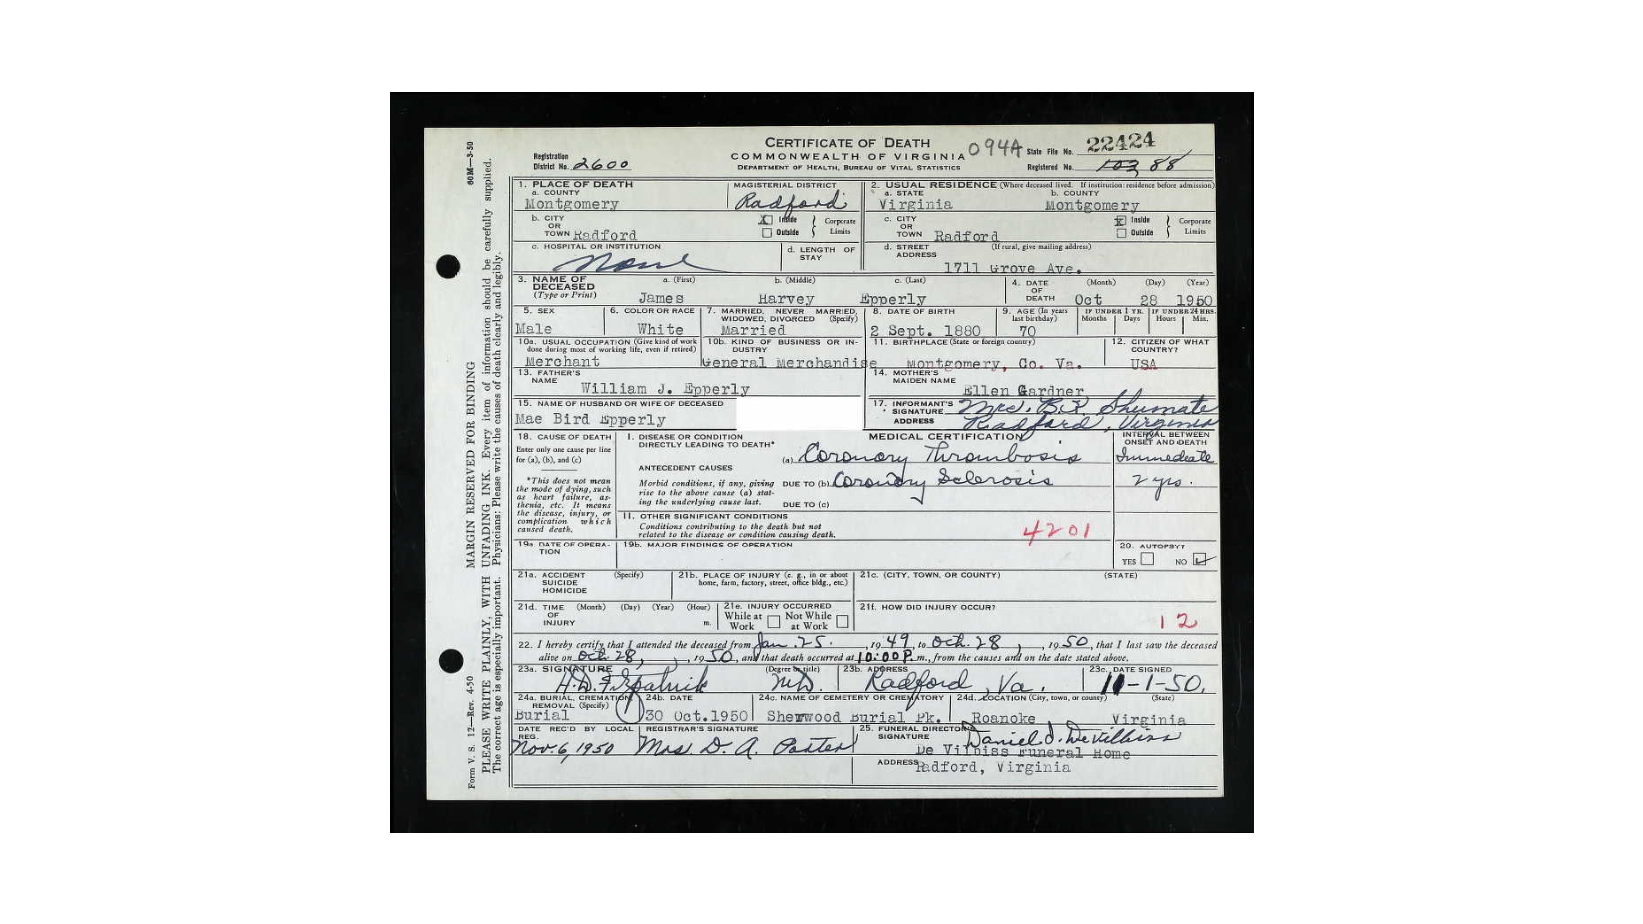 CERTIFICATE OF DEATH
COMMONWEALTH OF VIRGINIA
DEPARTMENT OF HEALTH, BUREAU OF VITAL STATISTICS
Registration District No. 2600
094A State File No. 22424
Registered No. 103 88
60M—3-50
MARGIN RESERVED FOR BINDING
Form V. S. 12—Rev. 4-50
PLEASE WRITE PLAINLY, WITH UNFADING INK. Every item of information should be carefully supplied.
The correct age is especially important. Physicians: Please write the causes of death clearly and legibly.
1. PLACE OF DEATH
a. COUNTY
Montgomery
MAGISTERIAL DISTRICT
Radford
2. USUAL RESIDENCE (Where deceased lived. If institution: residence before admission)
a. STATE
Virginia
b. COUNTY
Montgomery
b. CITY OR TOWN Radford
Inside
Outside
Corporate Limits
c. CITY OR TOWN Radford
Inside
Outside
Corporate Limits
c. HOSPITAL OR INSTITUTION
None
d. LENGTH OF STAY
d. STREET ADDRESS (If rural, give mailing address)
1711 Grove Ave.
3. NAME OF DECEASED (Type or Print)
a. (First)
James
b. (Middle)
Harvey
c. (Last)
Epperly
4. DATE OF DEATH
(Month) (Day) (Year)
Oct 28 1950
5. SEX
Male
6. COLOR OR RACE
White
7. MARRIED, NEVER MARRIED, WIDOWED, DIVORCED (Specify)
Married
8. DATE OF BIRTH
2 Sept. 1880
9. AGE (In years last birthday)
70
IF UNDER 1 YR.
Months Days
IF UNDER 24 HRS.
Hours Min.
10a. USUAL OCCUPATION (Give kind of work done during most of working life, even if retired)
Merchant
10b. KIND OF BUSINESS OR INDUSTRY
General Merchandise
11. BIRTHPLACE (State or foreign country)
Montgomery, Co. Va.
12. CITIZEN OF WHAT COUNTRY?
USA
13. FATHER'S NAME
William J. Epperly
14. MOTHER'S MAIDEN NAME
Ellen Gardner
15. NAME OF HUSBAND OR WIFE OF DECEASED
Mae Bird Epperly
17. INFORMANT'S SIGNATURE Mrs. Shumate
ADDRESS Radford, Virginia
18. CAUSE OF DEATH
Enter only one cause per line for (a), (b), and (c)
*This does not mean the mode of dying, such as heart failure, asthenia, etc. It means the disease, injury, or complication which caused death.
MEDICAL CERTIFICATION
I. DISEASE OR CONDITION DIRECTLY LEADING TO DEATH*
(a) Coronary Thrombosis
INTERVAL BETWEEN ONSET AND DEATH
Immediate
ANTECEDENT CAUSES
Morbid conditions, if any, giving rise to the above cause (a) stating the underlying cause last.
DUE TO (b) Coronary Sclerosis
2 yrs.
DUE TO (c)
II. OTHER SIGNIFICANT CONDITIONS
Conditions contributing to the death but not related to the disease or condition causing death.
4201
19a. DATE OF OPERATION
19b. MAJOR FINDINGS OF OPERATION
20. AUTOPSY?
YES NO
21a. ACCIDENT SUICIDE HOMICIDE (Specify)
21b. PLACE OF INJURY (e. g., in or about home, farm, factory, street, office bldg., etc.)
21c. (CITY, TOWN, OR COUNTY) (STATE)
21d. TIME OF INJURY (Month) (Day) (Year) (Hour) m.
21e. INJURY OCCURRED
While at Work Not While at Work
21f. HOW DID INJURY OCCUR?
12
22. I hereby certify that I attended the deceased from Jan. 25, 1949, to Oct. 28, 1950, that I last saw the deceased
alive on Oct. 28, 1950, and that death occurred at 10:00 P. m., from the causes and on the date stated above.
23a. SIGNATURE (Degree or title)
H.D. Fitzpatrick M.D.
23b. ADDRESS
Radford, Va.
23c. DATE SIGNED
11-1-50.
24a. BURIAL, CREMATION, REMOVAL (Specify)
Burial
24b. DATE
30 Oct. 1950
24c. NAME OF CEMETERY OR CREMATORY
Sherwood Burial Pk.
24d. LOCATION (City, town, or county) (State)
Roanoke Virginia
DATE REC'D BY LOCAL REG.
Nov. 6, 1950
REGISTRAR'S SIGNATURE
Mrs. D. A.
25. FUNERAL DIRECTOR'S SIGNATURE
Daniel J. DeVilbiss
De Vilbiss Funeral Home
ADDRESS Radford, Virginia